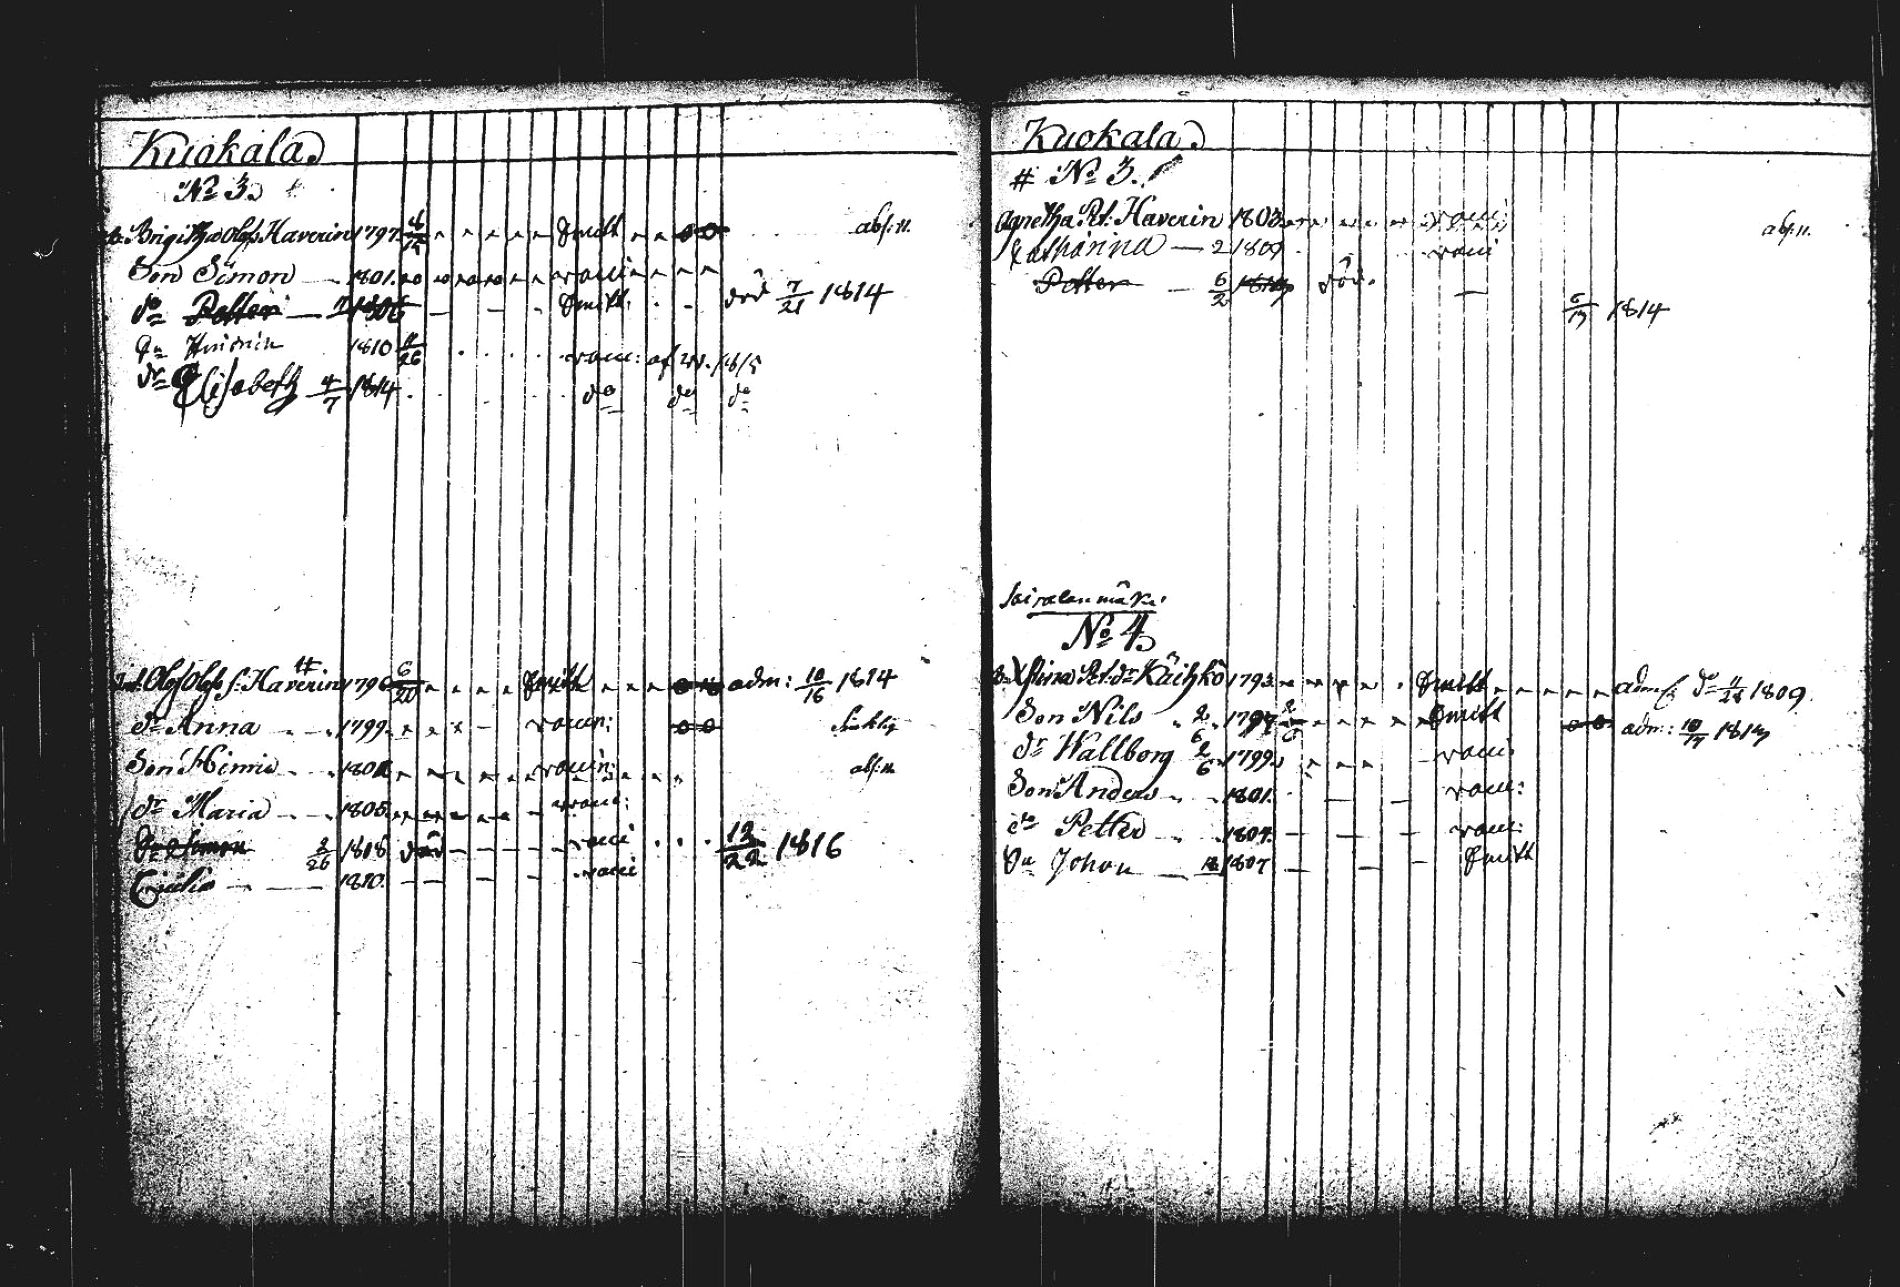 Kuokala
No 3.
Brigitha Olofs Haverin 1797. 4 absn.
Son Simon 1801. vacc:
do Petter 1806 smitt. död 7/21 1814
Hinrich 1810 11/26 vacc: af 1815
dr Elisabeth 4/7 1814 do do do
Olof Olofs s: Haverin 1796 6/20 smitt adm: 10/16 1814
dr Anna 1799. vaccin: siuklig
Son Hinric vaccin: absn
dr Maria 1805. vacc:
Simon 2/26 1808 död vacc 12/22 1816
Cecilia 1810. vacc
Kuokala.
# No 3.
Agnetha Pet: Haverin 1803 vacc: absn.
Catharina 2 1809 vacc
Petter 6/2 död 6/17 1814
Sairalanmäki
No 4
Stina Pet. dr Käihkö 1793. smitt adm. 1809.
Son Nils 2/6 1797. 2/6 smitt adm: 10/17
dr Wallborg 2/6 1799. vacc
Son Anders 1801. vacc:
do Petter 1804. vacc:
Johan 1807 smitt